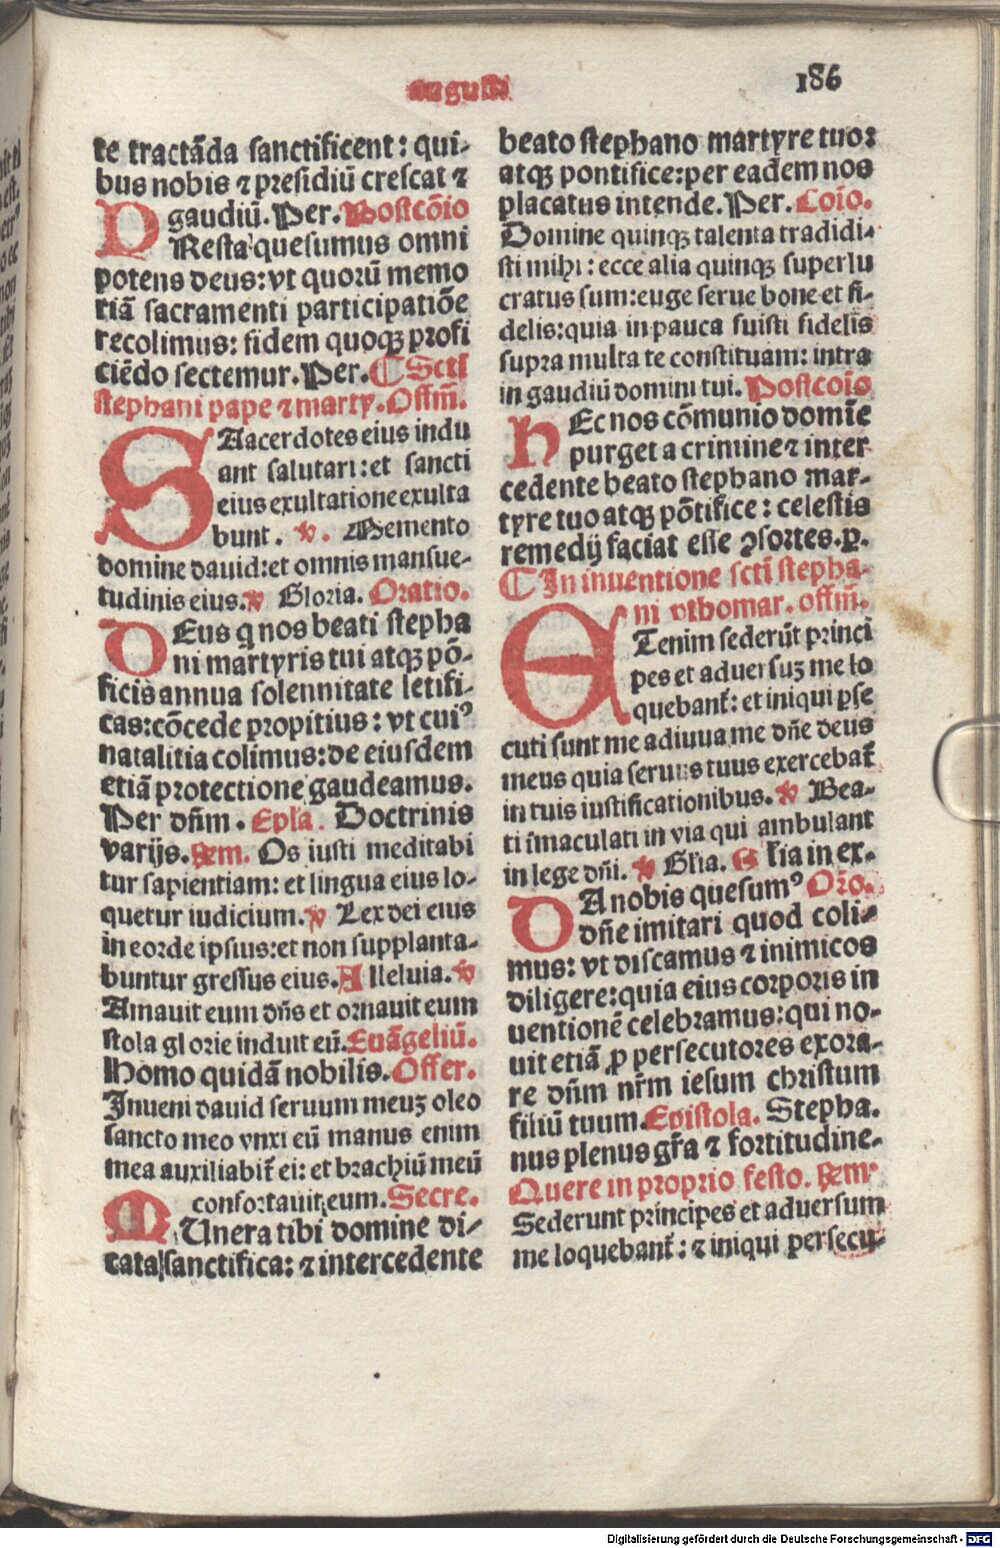 augusti
186
te tractāda sanctificent: qui-
bus nobis ⁊ presidiū crescat ⁊
gaudiū. Per. Postcōio
PResta quesumus omni
potens deus: vt quorū memo
riā sacramenti participatiōe
recolimus: fidem quoqꝫ profi
ciēdo sectemur. Per. ¶ Scti
stephani pape ⁊ marty. Offm̄.
SAacerdotes eius indu
ant salutari: et sancti
eius exultatione exulta
bunt. ꝟ. Memento
domine dauid: et omnis mansue-
tudinis eius. ꝟ Gloria. Oratio.
DEus q̄ nos beati stepha
ni martyris tui atqꝫ pō-
ficis annua solennitate letifi-
cas: cōcede propitius: vt cuiꝰ
natalitia colimus: de eiusdem
etiā protectione gaudeamus.
Per dn̄m. Epl̄a. Doctrinis
varijs. Rm̄. Os iusti meditabi
tur sapientiam: et lingua eius lo-
quetur iudicium. ꝟ Lex dei eius
in eorde ipsius: et non supplanta-
buntur gressus eius. Alleluia. ꝟ
Amauit eum dn̄s et ornauit eum
stola gl orie induit eū. Euāgeliū.
Homo quidā nobilis. Offer.
Inueni dauid seruum meuꝫ oleo
sancto meo vnxi eū manus enim
mea auxiliabit̄ ei: et brachiū meū
confortauit eum. Secre.
MUnera tibi domine di-
cata sanctifica: ⁊ intercedente
beato stephano martyre tuo:
atqꝫ pontifice: per eadem nos
placatus intende. Per. Coīo.
Domine quinqꝫ talenta tradidi-
sti mihi: ecce alia quinqꝫ superlu
cratus sum: euge serue bone et fi-
delis: quia in pauca fuisti fidelis
supra multa te constituam: intra
in gaudiū domini tui. Postcoīo
HEc nos cōmunio domīe
purget a crimine ⁊ inter
cedente beato stephano mar-
tyre tuo atqꝫ pōtifice: celestis
remedij faciat esse ꝯsortes. p.
¶ In inuentione sctī stepha-
ni vthomar. offm̄.
ETenim sederūt princi
pes et aduersuꝫ me lo
quebant̄: et iniqui ꝑse
cuti sunt me adiuua me dn̄e deus
meus quia seruus tuus exercebat̄
in tuis iustificationibus. ꝟ Bea-
ti īmaculati in via qui ambulant
in lege dn̄i. ꝟ Gl̄ia. Gl̄ia in ex-
DA nobis quesumꝰ Oro.
dn̄e imitari quod coli-
mus: vt discamus ⁊ inimicos
diligere: quia eius corporis in
uentionē celebramus: qui no-
uit etiā ꝓ persecutores exora-
re dn̄m nr̄m iesum christum
filiū tuum. Epistola. Stepha.
nus plenus gr̄a ⁊ fortitudine.
Quere in proprio festo. Rm̄
Sederunt principes et aduersum
me loquebant̄: ⁊ iniqui persecu-
Digitalisierung gefördert durch die Deutsche Forschungsgemeinschaft - DFG